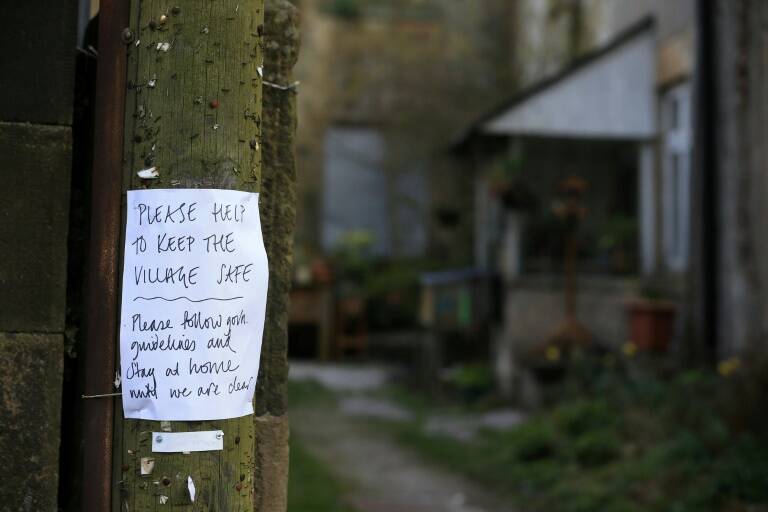 PLEASE HELP
TO KEEP THE
VILLAGE SAFE
Please follow govn.
guidelines and
Stay at home
until we are clear